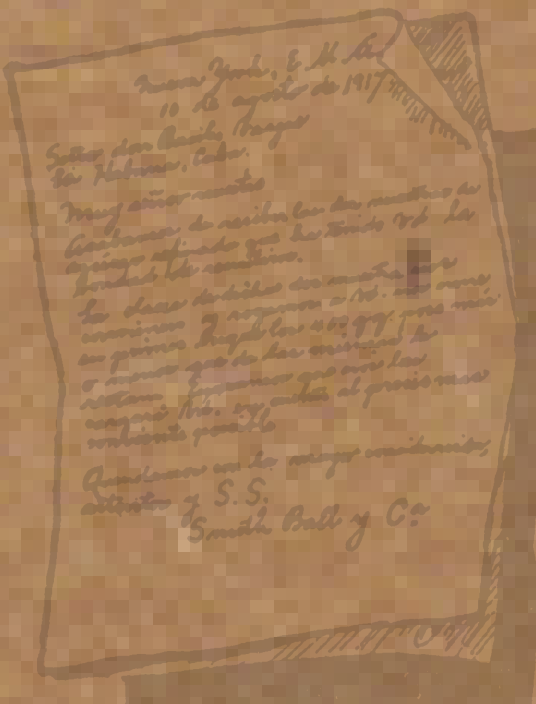 Nueva York, E. U. A.
10 de agosto de 1917
Señor don Basilio Vargas
La Habana, Cuba.
Muy señor nuestro
Acabamos de recibir las dos muestras de
azúcar refinado que ha tenido Vd. la
bondad de remitirnos.
La clase de dichas dos muestras nos
conviene y rogamos a Vd. nos
su primo Ángel los qq. poco más
o menos que de las mismas le
restan. Esperamos que nos las
Vd. al precio más
conveniente posible
Quedamos con la mayor consideración,
atentos y S. S.
Smith Ball y Ca.